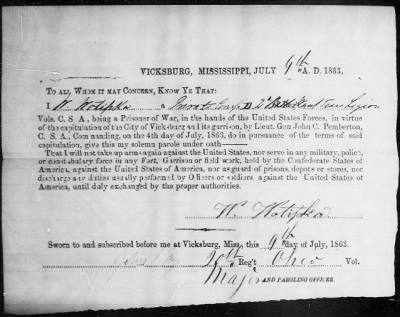 VICKSBURG, MISSISSIPPI, JULY 9th A. D. 1863.
TO ALL WHOM IT MAY CONCERN, KNOW YE THAT:
I W. Wotipka a Private Co. D 2d Texas Legion
Vols. C. S. A., being a Prisoner of War, in the hands of the United States Forces, in virtue
of the capitulation of the City of Vicksburg and its garrison, by Lieut. Gen John C. Pemberton,
C. S. A., Commanding, on the 4th day of July, 1863, do in pursuance of the terms of said
capitulation, give this my solemn parole under oath——
That I will not take up arms again against the United States, nor serve in any military, police,
or constabulary force in any Fort, Garrison or field work, held by the Confederate States of
America, against the United States of America, nor as guard of prisons, depots or stores, nor
discharge any duties usually performed by Officers or soldiers against the United States of
America, until duly exchanged by the proper authorities.
W. Wotipka
Sworn to and subscribed before me at Vicksburg, Miss., this 9th day of July, 1863.
20th Reg't Ohio Vol.
Major AND PAROLING OFFICER.